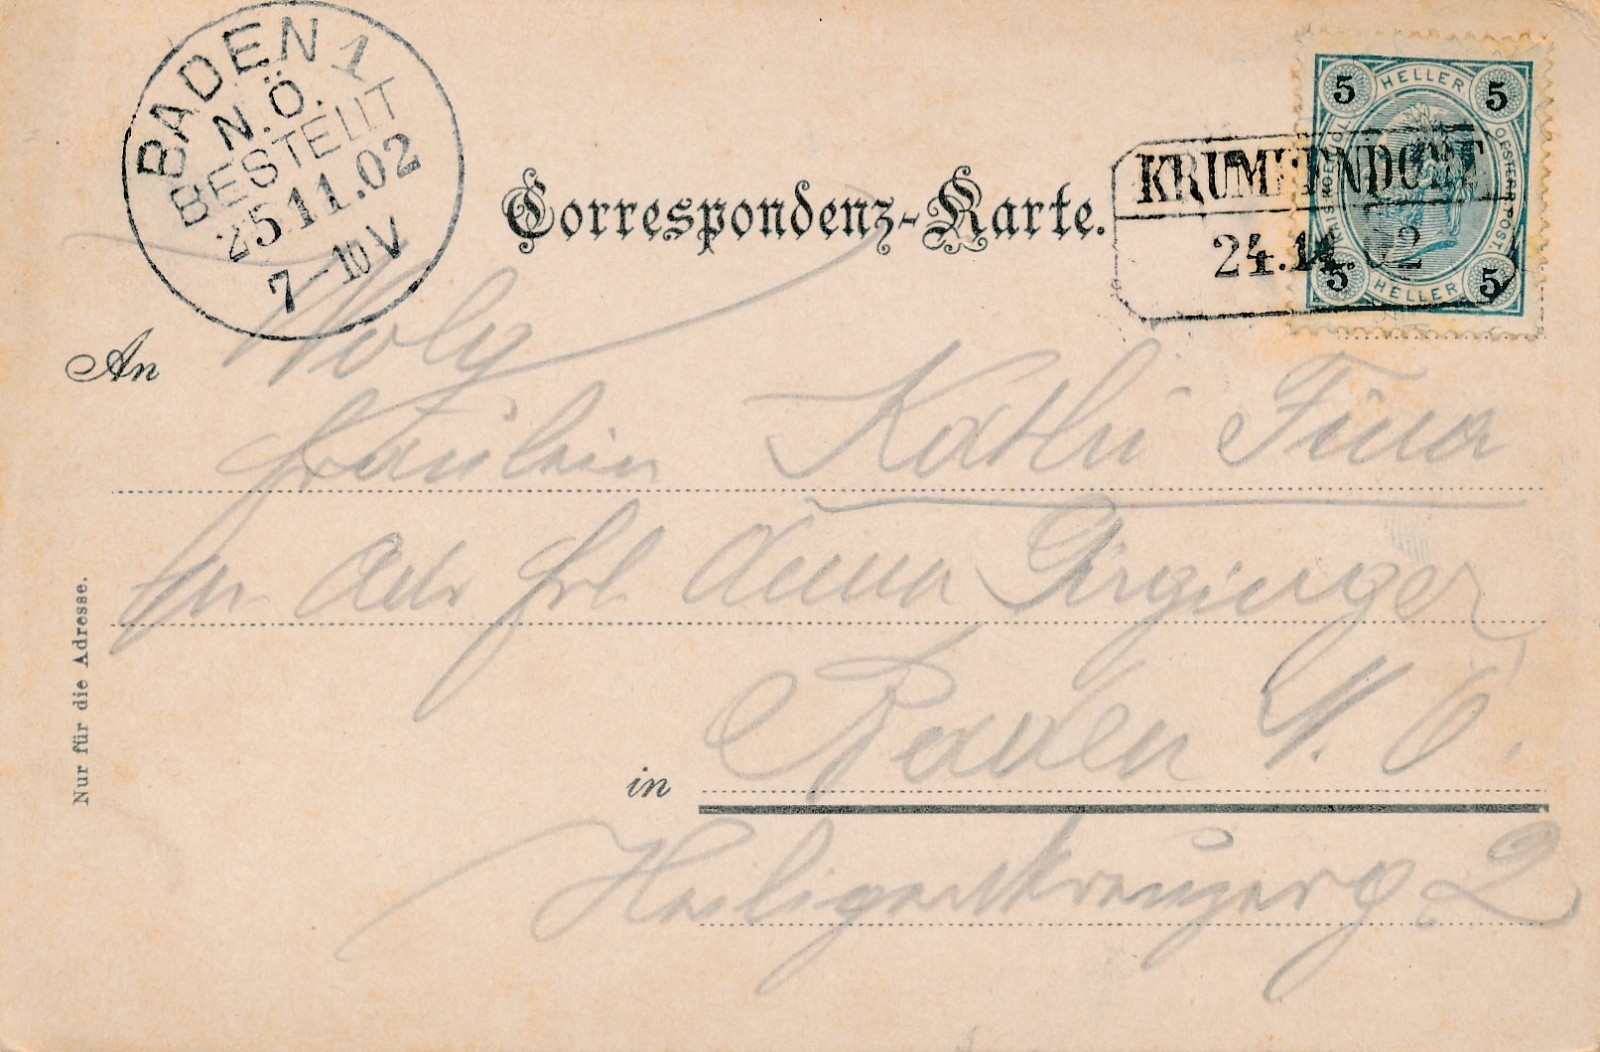 BADEN 1
N.Ö.
BESTELLT
25 11.02
7–10 V
5 HELLER 5
KRUMPENDORF
24.11.02
5 HELLER 5
Correspondenz-Karte.
An
Fräulein Kathi
per Adr Frl Anna
in Baden N. Ö.
Heiligenkreuzerg 2
Nur für die Adresse.